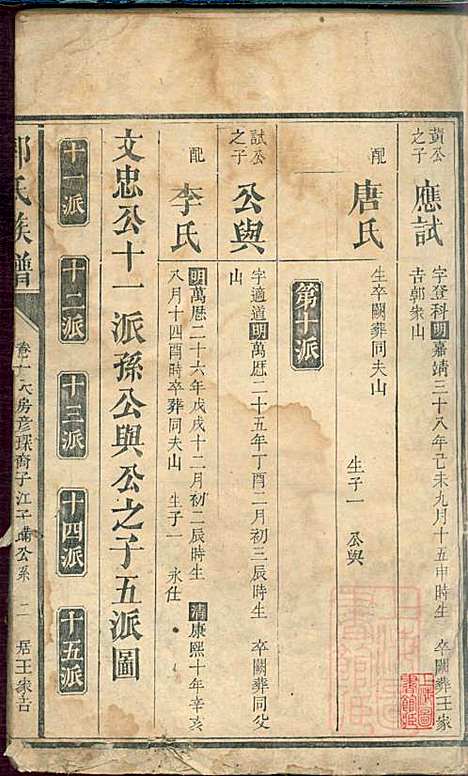 黃公之子 應試 字登科明嘉靖三十八年己未九月十五申時生 卒闕葬王家
吉郭家山
配 唐氏 生卒闕葬同夫山 生子一 公與
第十派
試公之子 公與 字適道明萬厯二十五年丁酉二月初三辰時生 卒闕葬同父
山
配 李氏 明萬厯二十六年戊戌十二月初二辰時生 清康熙十年辛亥
八月十四酉時卒葬同夫山 生子一 永仕
文忠公十一派孫公與公之子五派圖
十一派 十二派 十三派 十四派 十五派
氏族譜 房彥琛裔子江 公系 二 居王家吉
上海圖書館藏